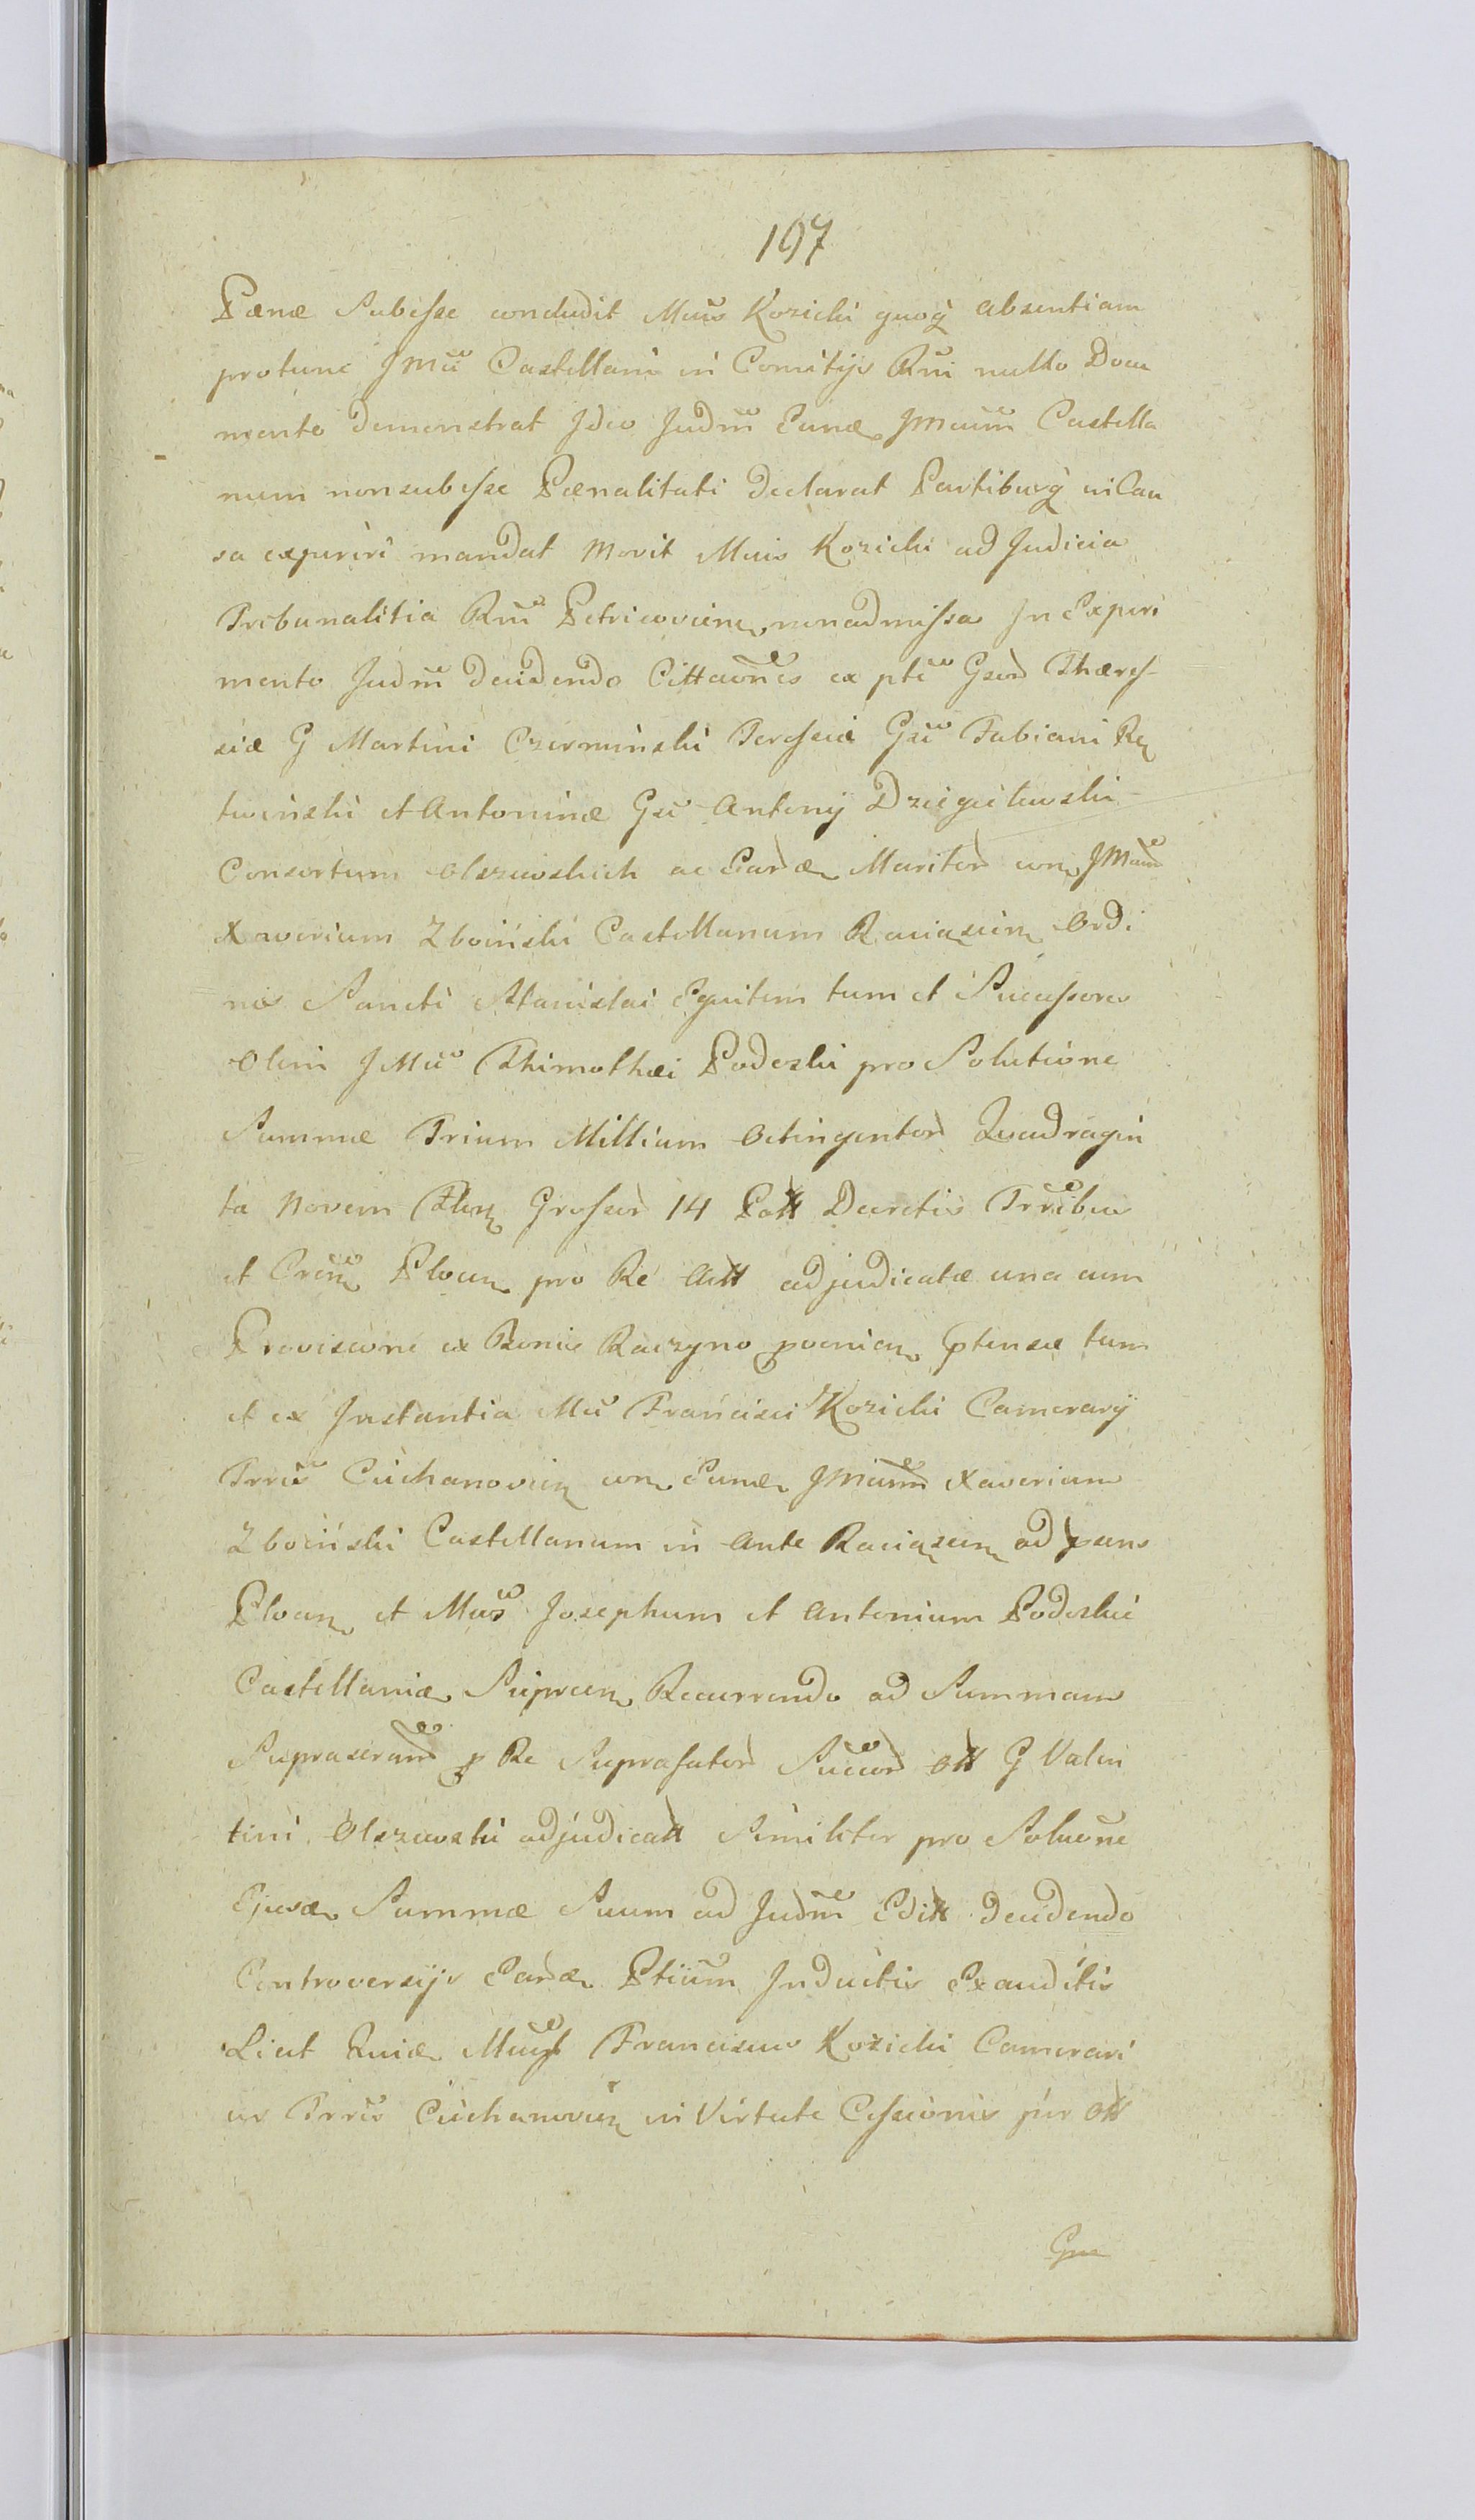 197
Pænæ Subesse concludit Mcus Kozicki quoq absentiam
protunc JMci Castellani in Comitijs Rni nullo Docu
mento demonstrat Ideo Judm Eund JMcum Castella
num nonsubesse Pænalitati declarat Partibusq in Cau
sa experiri mandat Movit Mcus Kozicki ad Judicia
Tribunalitia Rni Petricovien nonadmissa In Experi
mento Judm decidendo Cittaones ex pte Gsor Thæres-
siæ G Martini Czerminski Teressiæ Gsi Fabiani Re
twinski et Antoninæ Gsi Antonij Dzięgielewski
Consortum Olszewskich ac Eard Maritor con JMcum
Xaverium Zboinski Castellanum Raciązien Ordi
nis Sancti Stanislai Equitem tum et Successores
Olim JMci Thimothæi Podoski pro Solutione
Summæ Trium Millium Octingentor Quadragin
ta Novem Flen Grossor 14 Pol Decretis Trribus
et Cren Plocen pro Re Act adjudicatæ una cum
Provisione ex Bonis Raczyno provenien ptensæ tum
et ex Instantia Mci Francisci Kozicki Camerarij
Trris Ciechanovien con Eund JMcum Xaverium
Zboinski Castellanum in Ante Raciązien ad psens
Plocen et Mcos Josephum et Antonium Podoskie
Castellanid Sieprcen Recurrendo ad Summam
Suprascram p Re Suprafator Succor Ol G Valen
tini Olszewski adjudicat Similiter pro Soluone
Ejusd Summæ Suum ad Judm Edit decidendo
Controversijs Eard Ptium Inductis Exauditis
Licet Quid Mcus Franciscus Kozicki Camerari
us Trris Ciechanovien in Virtute Cessionis jur Ol
Gne